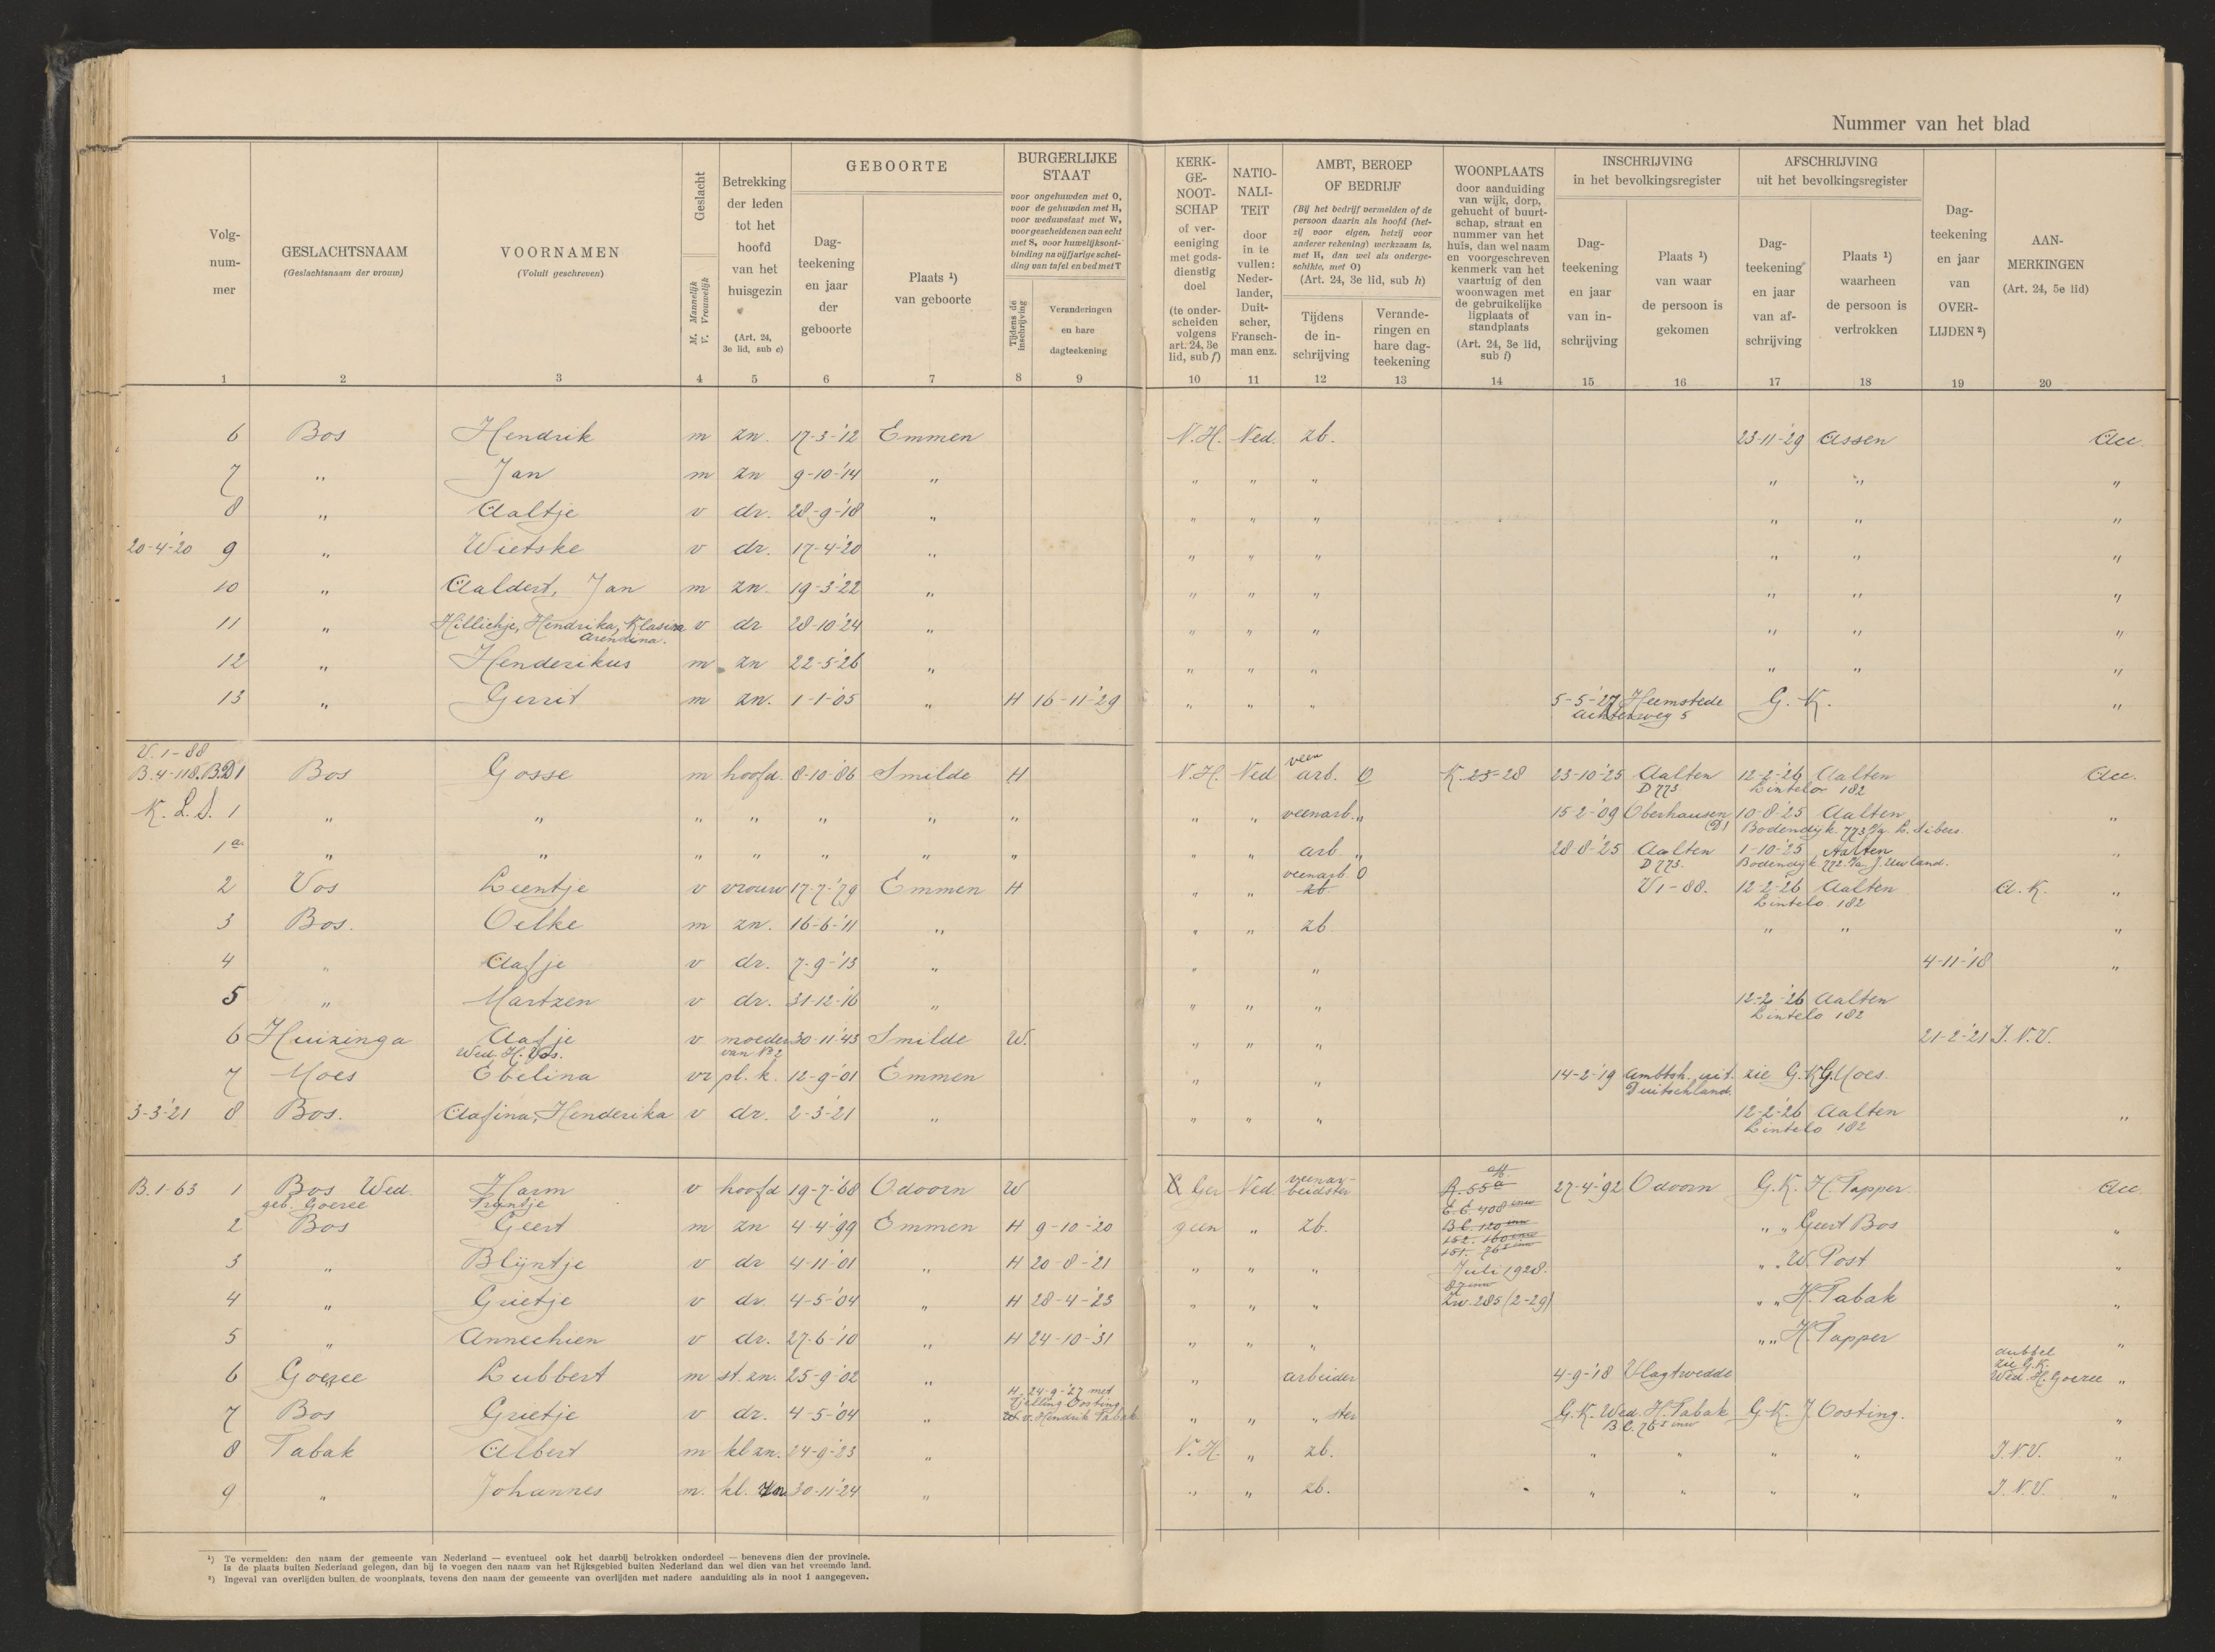 Nummer van het blad
Volg-
num-
mer
GESLACHTSNAAM
(Geslachtsnaam der vrouw)
VOORNAMEN
(Voluit geschreven)
Geslacht
M. Mannelijk
V. Vrouwelijk
Betrekking
der leden
tot het
hoofd
van het
huisgezin
(Art. 24,
3e lid, sub c)
GEBOORTE
Dag-
teekening
en jaar
der
geboorte
Plaats ¹)
van geboorte
BURGERLIJKE
STAAT
voor ongehuwden met O,
voor de gehuwden met H,
voor weduwstaat met W,
voor gescheidenen van echt
met S, voor huwelijksont-
binding na vijfjarige schei-
ding van tafel en bed met T
Tijdens de
inschrijving
Veranderingen
en hare
dagteekening
KERK-
GE-
NOOT-
SCHAP
of ver-
eeniging
met gods-
dienstig
doel
(te onder-
scheiden
volgens
art. 24, 3e
lid, sub f)
NATIO-
NALI-
TEIT
door
in te
vullen:
Neder-
lander,
Duit-
scher,
Fransch-
man enz.
AMBT, BEROEP
OF BEDRIJF
(Bij het bedrijf vermelden of de
persoon daarin als hoofd (het-
zij voor eigen, hetzij voor
anderer rekening) werkzaam is,
met H, dan wel als onderge-
schikte, met O)
(Art. 24, 3e lid, sub h)
Tijdens
de in-
schrijving
Verande-
ringen en
hare dag-
teekening
WOONPLAATS
door aanduiding
van wijk, dorp,
gehucht of buurt-
schap, straat en
nummer van het
huis, dan wel naam
en voorgeschreven
kenmerk van het
vaartuig of den
woonwagen met
de gebruikelijke
ligplaats of
standplaats
(Art. 24, 3e lid,
sub i)
INSCHRIJVING
in het bevolkingsregister
Dag-
teekening
en jaar
van in-
schrijving
Plaats ¹)
van waar
de persoon is
gekomen
AFSCHRIJVING
uit het bevolkingsregister
Dag-
teekening
en jaar
van af-
schrijving
Plaats ¹)
waarheen
de persoon is
vertrokken
Dag-
teekening
en jaar
van
OVER-
LIJDEN ²)
AAN-
MERKINGEN
(Art. 24, 5e lid)
1 2 3 4 5 6 7 8 9 10 11 12 13 14 15 16 17 18 19 20
6 Bos Hendrik m zn. 17-3-'12 Emmen N.H. Ned. zb. 23-11-'29 Assen Acc.
7 " Jan m zn 9-10-'14 " " " " " " "
8 " Aaltje v dr. 28-9-'18 " " " " " " "
20-4-'20 9 " Wietske v dr. 17-4-'20 " " " " " " "
10 " Aaldert, Jan m zn. 19-3-'22 " " " " " " "
11 " Hillichje, Hendrika, Klasina v dr 28-10-'24 " " " " " " "
Arendina.
12 " Henderikus m zn 22-5-'26 " " " " " " "
13 " Gerrit m zn. 1-1-'05 " H 16-11-'29 " " " 5-5-'27 Heemstede G. K. "
Achterweg 5
V. 1-88
B.4-118. 1 Bos Gosse m hoofd 8-10-'86 Smilde H N.H. Ned veen
arb. O K. 25-28 23-10-'25 Aalten 12-2-'26 Aalten Acc.
D 773 Lintelo 182
K. L. S. 1 " " " " " " " " " veenarb. " 15-2-'09 Oberhausen 10-8-'25 Aalten "
Bodendijk 773 L. Sibers
1a " " " " " " " " " arb. " 28-8-'25 Aalten 1-10-'25 Aalten "
D 773. Bodendijk 772
2 Vos Leentje v vrouw 17-7-'79 Emmen H " " veenarb. O
zb V1-88. 12-2-'26 Aalten A. K. "
Lintelo. 182
3 Bos. Oelke m zn. 16-6-'11 " " " zb " " "
4 " Aafje v dr. 7-9-'13 " " " 4-11-'18 "
5 " Martzen v dr. 31-12-'16 " " " " 12-2-'26 Aalten
Lintelo 182
6 Huizinga Aafje v moeder 30-11-'43 Smilde W. " " " 21-2-'21 I. N. V.
Wed. H. Vos. van No 2
7 Moes Ebelina vr pl. k. 12-9-'01 Emmen " " 14-2-'19 Ambtsh. uit zie G. K. G. Moes.
Duitschland.
3-3-'21 8 Bos. Aafina, Henderika v dr. 2-3-'21 " " " " 12-2-'26 Aalten "
Lintelo 182
B. 1-63 1 Bos Wed. Harm v hoofd 19-7-'68 Odoorn W Ger Ned. veenar-
beidster A. 55a 27-4-'92 Odoorn G. K. H. Tapper Acc
geb. Goeree Trijntje E.E. 408
2 Bos Geert m zn 4-4-'99 Emmen H 9-10-'20 geen " zb. B C. 120 " " Geert Bos "
152. 160
151. 76
3 " Blijntje v dr 4-11-'01 " H 20-8-'21 " " " Juli 1928. " " W. Post "
4 " Grietje v dr. 4-5-'04 " H 28-4-'23 " " " Zw. 285 (2-29) " " H. Tabak "
5 " Annechien v dr. 27-6-'10 " H 24-10-'31 " " " " " H. Tapper "
6 Goeree Lubbert m st. zn. 25-9-'02 " " arbeider 4-9-'18 Vlagtwedde dubbel
zie G.K.
Wed. H. Goeree "
7 Bos Grietje v dr. 4-5-'04 " H. 24-9-'27 met
Oosting
W v. Hendrik Tabak " " " ster G. K. Wed. H. Tabak G. K. J. Oosting. "
B C. 76
8 Tabak Albert m kl zn. 24-9-'23 " N. H. " zb. " " " " I. N. V. "
9 " Johannes m. kl. zn 30-11-'24 " " " zb. " " " " I. N. V. "
¹) Te vermelden: den naam der gemeente van Nederland — eventueel ook het daarbij betrokken onderdeel — benevens dien der provincie.
Is de plaats buiten Nederland gelegen, dan bij te voegen den naam van het Rijksgebied buiten Nederland dan wel dien van het vreemde land.
²) Ingeval van overlijden buiten de woonplaats, tevens den naam der gemeente van overlijden met nadere aanduiding als in noot 1 aangegeven.